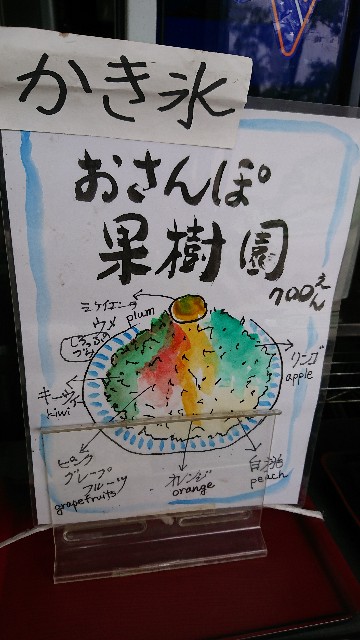 かき氷
おさんぽ
果樹園
700えん
plum
ウメ
リンゴ
apple
キーウィ
kiwi
ピンク
グレープ
フルーツ
grapefruits
オレンジ
orange
白桃
peach